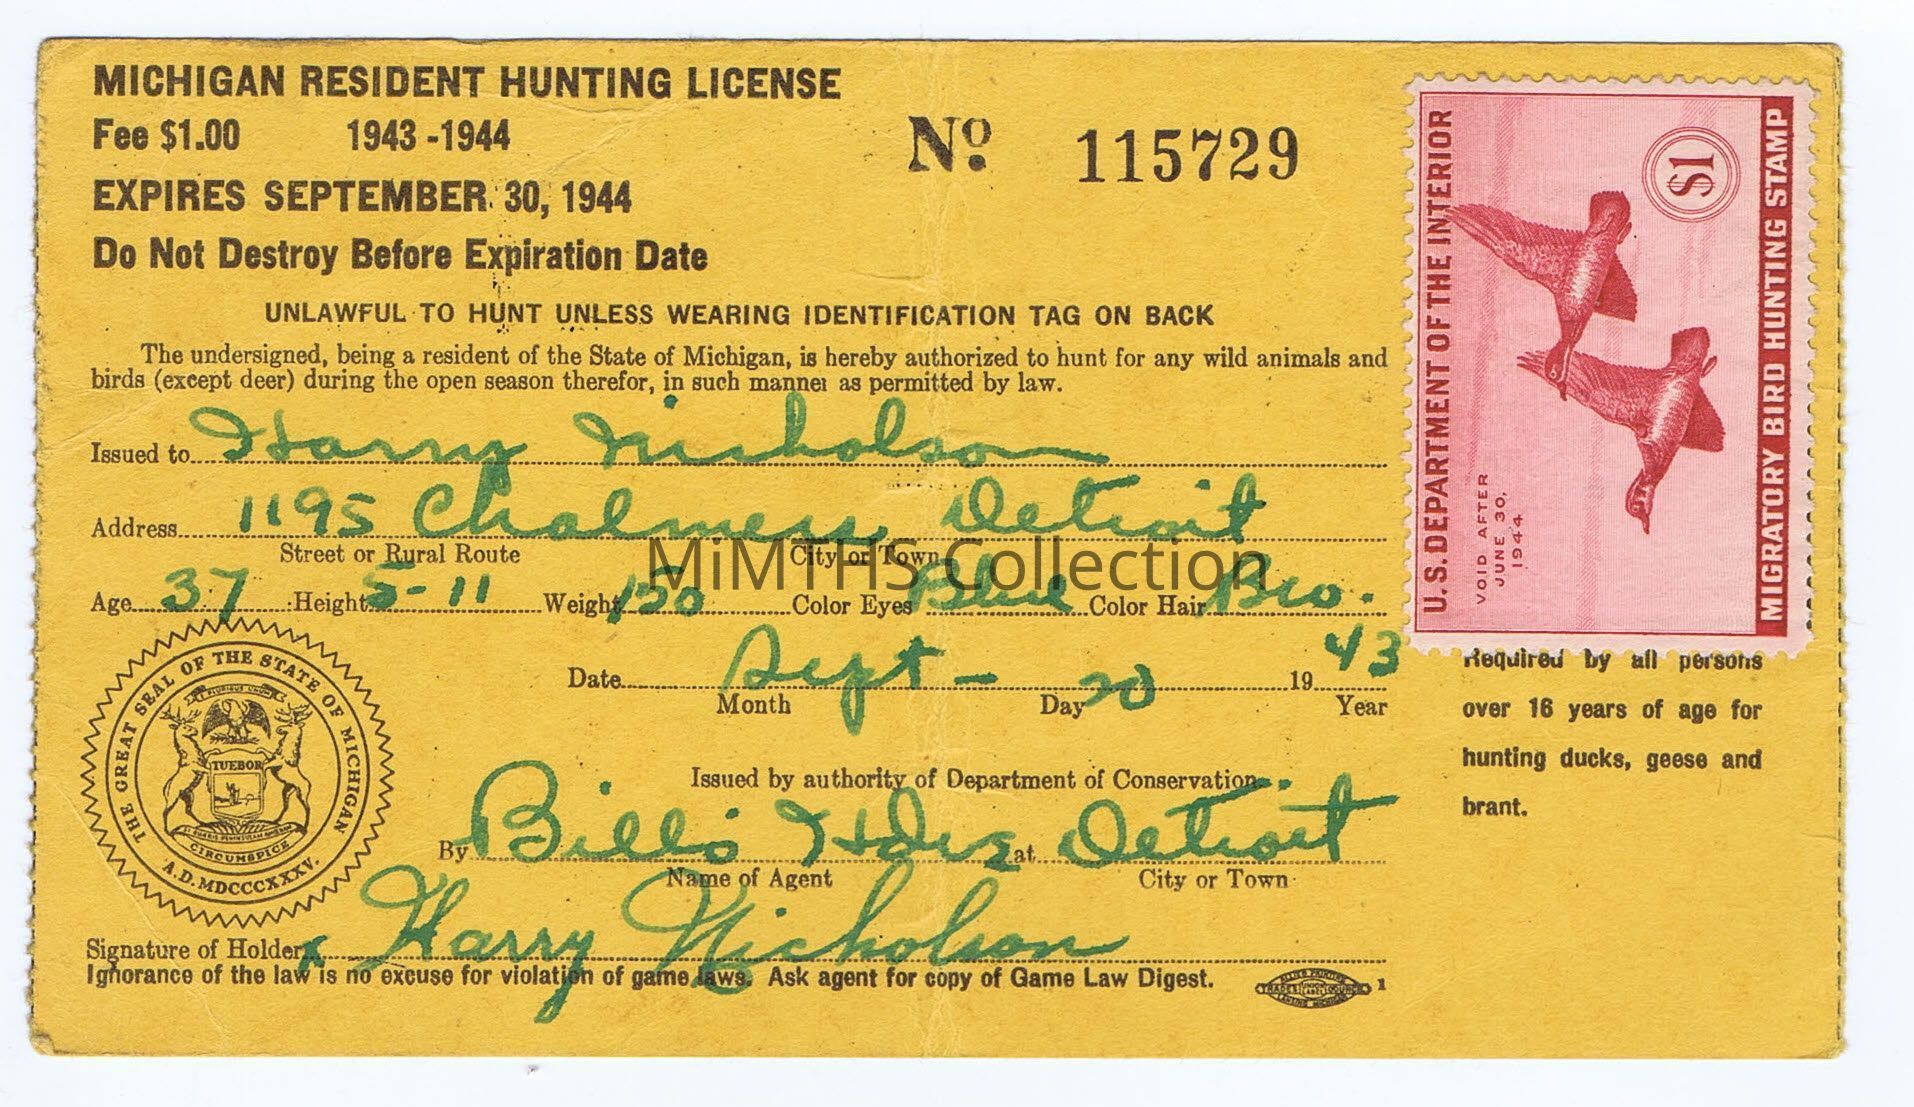 MICHIGAN RESIDENT HUNTING LICENSE
Fee $1.00 1943-1944
Nº 115729
EXPIRES SEPTEMBER 30, 1944
Do Not Destroy Before Expiration Date
UNLAWFUL TO HUNT UNLESS WEARING IDENTIFICATION TAG ON BACK
The undersigned, being a resident of the State of Michigan, is hereby authorized to hunt for any wild animals and
birds (except deer) during the open season therefor, in such manner as permitted by law.
Issued to Harry Nicholson
Address 1195 Chalmers Detroit
Street or Rural Route City or Town
MiMTHS Collection
Age 37 Height 5-11 Weight 150 Color Eyes Blue Color Hair Bro.
Date Sept - 20 19 43
Month Day Year
Issued by authority of Department of Conservation
By Bill's at Detroit
Name of Agent City or Town
Signature of Holder x Harry Nicholson
Ignorance of the law is no excuse for violation of game laws. Ask agent for copy of Game Law Digest.
1
THE GREAT SEAL OF THE STATE OF MICHIGAN
E PLURIBUS UNUM
TUEBOR
CIRCUMSPICE
A.D. MDCCCXXXV.
U.S. DEPARTMENT OF THE INTERIOR
VOID AFTER
JUNE 30,
1944
$1
MIGRATORY BIRD HUNTING STAMP
Required by all persons
over 16 years of age for
hunting ducks, geese and
brant.